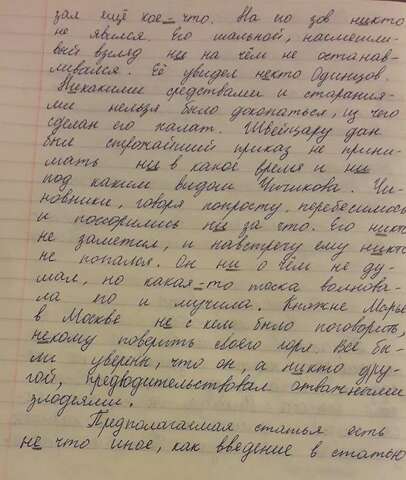 зал ещё кое-что. На по зов никто
не явился. Его шальной, насмешли-
вый взгляд ни на чём не останав-
ливался. Её увидел некто Одинцов.
Никакими средствами и старания-
ми нельзя было докопаться, из чего
сделан его халат. Швейцару дан
был строжайший приказ не прини-
мать ни в какое время и ни
под каким видом Чичикова. Чи-
новники, говоря попросту, перебесились
и поссорились ни за что. Его никто
не заметил, и навстречу ему никто
не попался. Он ни о чём не ду-
мал, но какая-то тоска волнова-
ла его и мучила. Княжне Марье
в Москве не с кем было поговорить,
некому поверить своего горя. Все бы-
ли уверены, что он, а никто дру-
гой, предводительствовал отважными
злодеями.
Предполагаемая статья есть
не что иное, как введение в статью